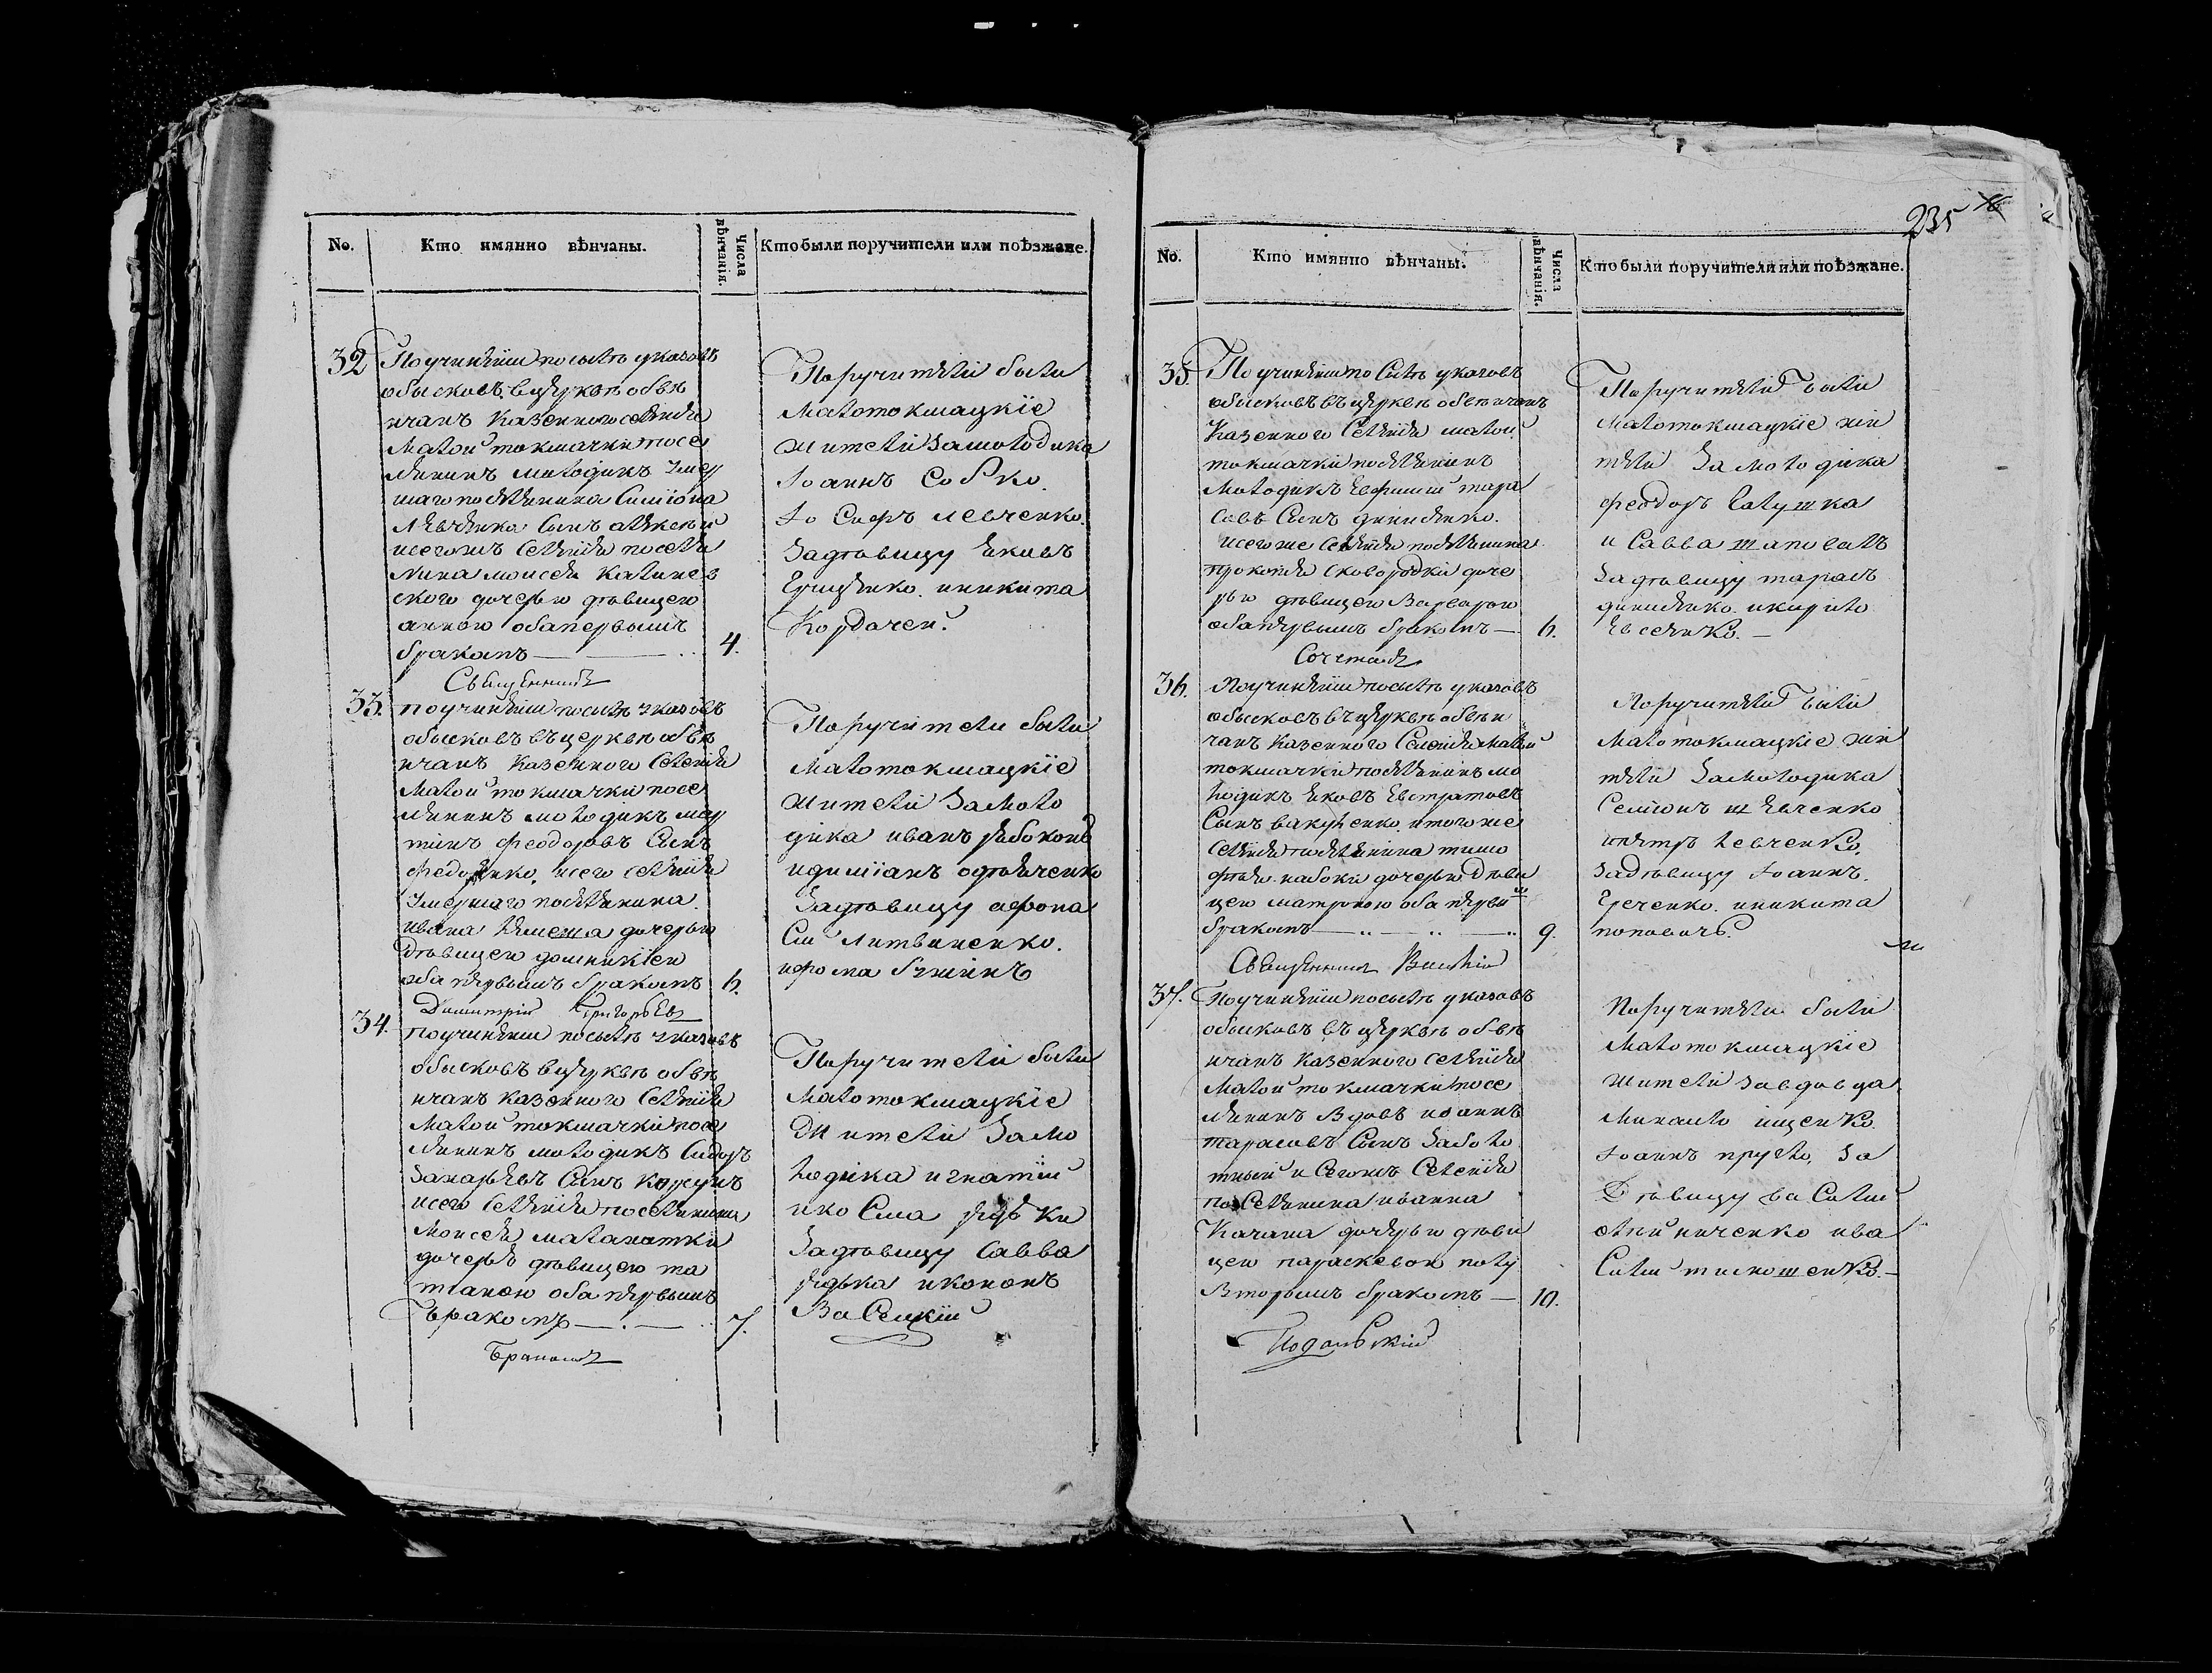 No.
Кто имянно вѣнчаны.
Числа вѣнчанія.
Кто были поручители или поѣзжане.
32
По учинѣніи по силѣ указовъ
обысковъ в церквѣ обвѣ
нчанъ казенного селѣнія
Малой токмачки посе
лѣнинъ молодикъ умер
шаго поселѣнина Симіона
Лѣвчѣнка сынъ алѣксѣй
исегожъ селѣнія поселѣ
нина моисея калинев
ского дочерью дѣвицею
анною оба первымъ
бракомъ
4.
Поручитѣли были
Малотокмацкіе
жители за молодика
Іоаннъ Собко.
Іосифъ левченко.
За дѣвицу яковъ
Грицѣнко. иникита
Кордачей.
Священникъ
33.
по учинѣніи по силѣ указовъ
обысковъ въ церквѣ обвѣ
нчанъ казенного селенія
Малой токмачки посе
лѣнинъ молодикъ мар
тинъ феодоровъ сынъ
Федорѣнко, исего селѣнія
Умершаго поселѣнина
ивана дочерью
дѣвицею домникіею
оба первымъ бракомъ
6.
Поручители были
Малотокмацкіе
жители за моло
дика иванъ рябоконь
идиміанъ
За дѣвицу афона
сій Литвиненко.
ифома
Димитрій Григорьевъ
34.
по учинѣніи по силѣ указовъ
обысковъ в церквѣ обвѣ
нчанъ казенного селѣнія
Малой токмачки посе
лѣнинъ молодикъ сидоръ
Захарьевъ сынъ коржунъ
исего селѣнія поселѣнина
Моисея малахатки
дочерь дѣвицею та
тіаною оба пѣрвымъ
бракомъ
7.
Поручители были
Малотокмацкіе
жители за мо
лодика игнатій
икосма рядьки
За дѣвицу савва
рядька иконон
Васецкій
Браномъ
235
No.
Кто имянно вѣнчаны.
Числа вѣнчанія.
Кто были поручители или поѣзжане.
35.
По учинѣніи по силѣ указовъ
обысковъ въ церквѣ обвѣнчанъ
Казенного селѣнія малой
токмачки поселѣнинъ
Молодикъ Евфимій тара
совъ сынъ динисѣнко.
исегоже селѣнія поселѣнина
прокопія сковородки доче
рью дѣвицею Варварою
оба пѣрвымъ бракомъ
6.
Поручитѣли были
Малотокмацкіе жи
тѣли За молодика
феодоръ Галушка
и Савва шаповалъ
За дѣвицу тарасъ
динисѣнко. икирило
Евсѣнко.
36.
По учинѣніи по силѣ указовъ
обысковъ въ церквѣ обвѣн
чанъ казенного селенія Малой
токмачки поселѣнинъ мо
лодикъ яковъ Евстратовъ
Сынъ вакуленко. итогоже
селѣнія поселѣнина тимо
фѣя набоки дочерью дѣви
цею матроною оба пѣрвим
бракомъ
9.
Поручитѣли были
Малотокмацкіе жи
тѣли За молодика
Семіонъ шѣвченко
ипѣтръ левченко.
За дѣвицу Іоаннъ.
Гречѣнко. иникита
поповичь.
Священникъ Василій
37.
По учинѣніи по силѣ указовъ
обысковъ въ церквѣ обвѣ
нчанъ казенного селѣнія
Малой токмачки посе
лѣнинъ вдовъ иоаннъ
тарасовъ сынъ Заболо
тный исегожъ селенія
поселѣнина иванна
Качана дочѣрью дѣви
цею параскевою полу
Вторымъ бракомъ
10.
Поручитѣли были
Малотокмацкіе
жители за вдовца
Михаило ищенко.
Іоаннъ прубло. За
Дѣвицу василий
олийниченко ива
силий тимошенко.
Подольскій